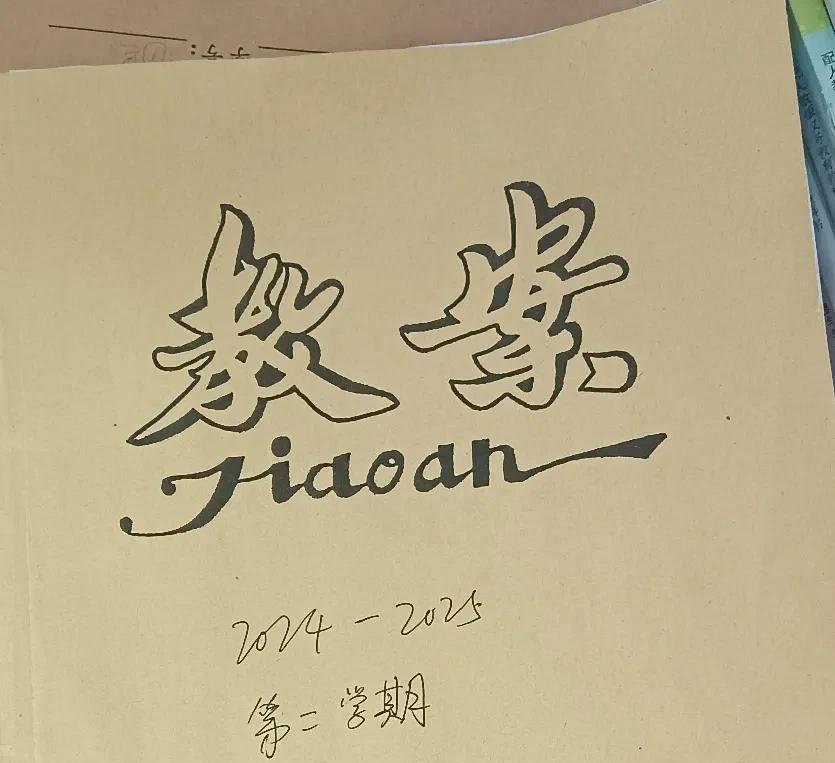 教案
Jiaoan
2024-2025
第二学期